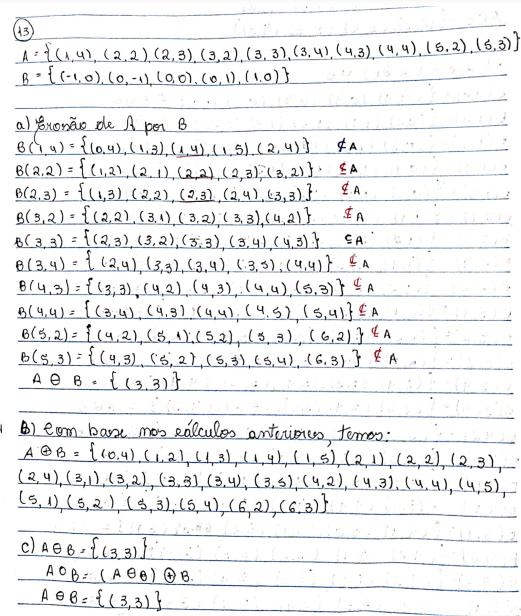 13
A = {(1,4), (2,2) (2,3), (3,2) (3,3), (3,4) (4,3), (4,4), (5,2), (5,3)}
B = {(-1,0), (0,-1), (0,0), (0,1), (1,0)}
a) Erosão de A por B
B(1,4) = {(0,4), (1,3), (1,4), (1,5), (2,4)} ⊄ A
B(2,2) = {(1,2), (2,1), (2,2), (2,3), (3,2)} ⊄ A
B(2,3) = {(1,3), (2,2), (2,3), (2,4), (3,3)} ⊄ A
B(3,2) = {(2,2), (3,1), (3,2), (3,3), (4,2)} ⊄ A
B(3,3) = {(2,3), (3,2), (3,3), (3,4), (4,3)} ⊆ A
B(3,4) = {(2,4), (3,3), (3,4), (3,5), (4,4)} ⊄ A
B(4,3) = {(3,3), (4,2), (4,3), (4,4), (5,3)} ⊄ A
B(4,4) = {(3,4), (4,3), (4,4), (4,5), (5,4)} ⊄ A
B(5,2) = {(4,2), (5,1), (5,2), (5,3), (6,2)} ⊄ A
B(5,3) = {(4,3), (5,2), (5,3), (5,4), (6,3)} ⊄ A
A ⊖ B = {(3,3)}
B) Com base nos cálculos anteriores, temos:
A ⊕ B = {(0,4), (1,2), (1,3), (1,4), (1,5), (2,1), (2,2), (2,3),
(2,4), (3,1), (3,2), (3,3), (3,4), (3,5), (4,2), (4,3), (4,4), (4,5),
(5,1), (5,2), (5,3), (5,4), (6,2), (6,3)}
C) A⊖B = {(3,3)}
A∘B = (A⊖B) ⊕ B
A⊖B = {(3,3)}